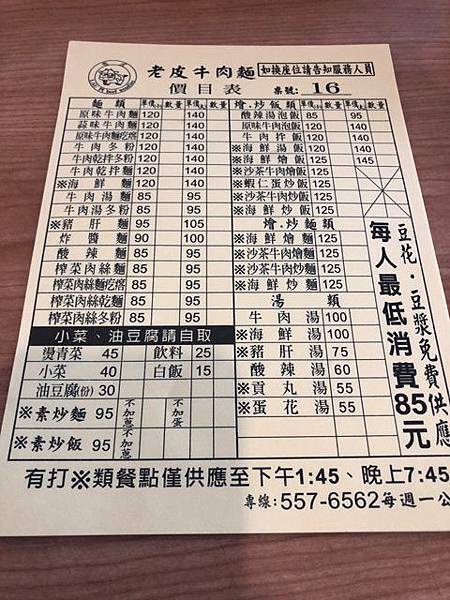 老皮牛肉麵 如換座位請告知服務人員
價目表 桌號: 16
麵類 單價小 數量 單價大 數量
原味牛肉麵 120 140
蒜味牛肉麵 120 140
原味牛肉麵疙瘩 120 140
牛肉冬粉 120 140
牛肉乾拌冬粉 120 140
牛肉乾拌麵 120 140
※海鮮麵 120 140
牛肉湯麵 85 95
牛肉湯冬粉 85 95
※豬肝麵 95 105
炸醬麵 90 100
酸辣麵 85 95
榨菜肉絲麵 85 95
榨菜肉絲麵疙瘩 85 95
榨菜肉絲乾麵 85 95
榨菜肉絲冬粉 85 95
小菜、油豆腐請自取
燙青菜 45 飲料 25
小菜 40 白飯 15
油豆腐(份) 30
※素炒麵 95 不加蔥 不加蛋
※素炒飯 95 不加蔥 不加蛋
燴.炒飯類 單價小 數量 單價大 數量
酸辣湯泡飯 85 95
原味牛肉泡飯 120 140
牛肉拌飯 120 140
※海鮮湯飯 120 140
※海鮮燴飯 125 145
※沙茶牛肉燴飯 125
※蝦仁蛋炒飯 125
※沙茶牛肉炒飯 125
※海鮮炒飯 125
燴.炒麵類
※海鮮燴麵 125
※沙茶牛肉燴麵 125
※沙茶牛肉炒麵 125
※海鮮炒麵 125
湯類
牛肉湯 100
※海鮮湯 100
※豬肝湯 75
酸辣湯 60
※貢丸湯 55
※蛋花湯 55
豆花.豆漿免費供應
每人最低消費85元
有打※類餐點僅供應至下午1:45、晚上7:45
專線:557-6562 每週一公